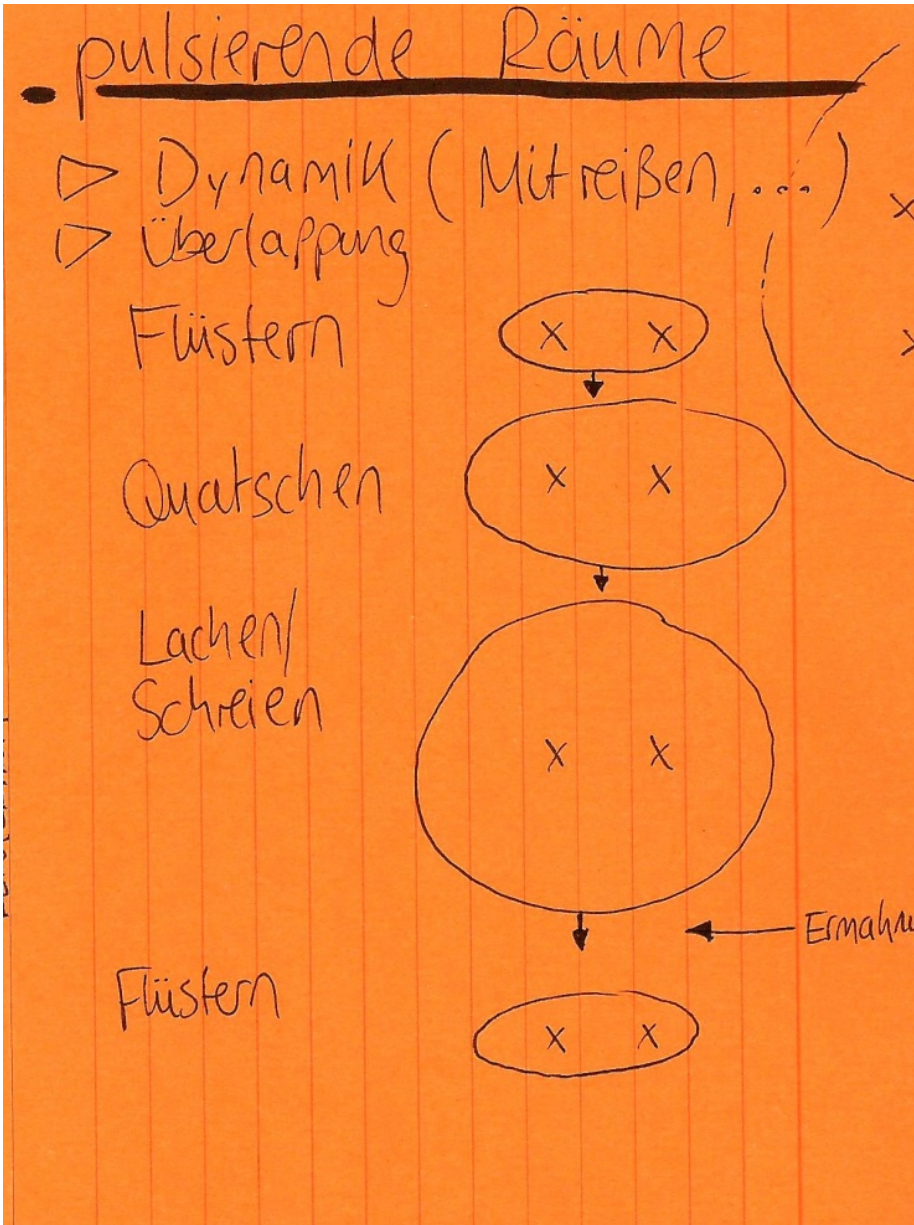 pulsierende Räume
▷ Dynamik (Mitreißen, ...)
▷ Überlappung
Flüstern
X X
Quatschen
X X
Lachen/
Schreien
X X
Ermahnu
Flüstern
X X